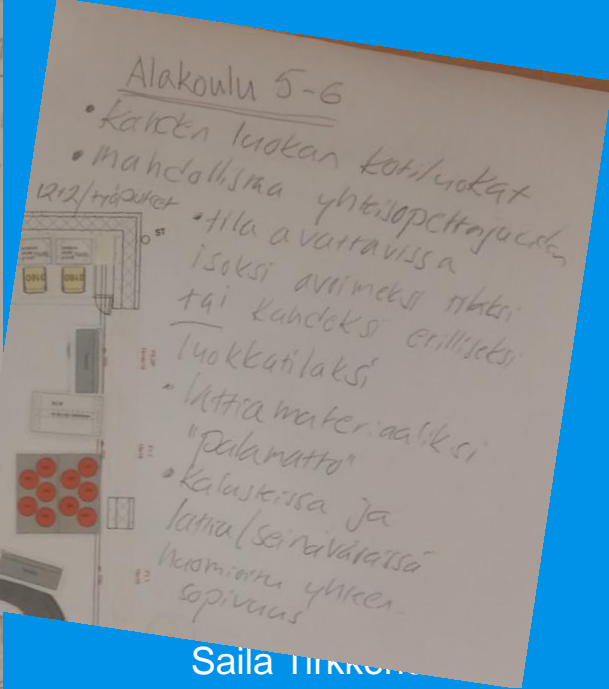 Alakoulu 5-6
• kahden luokan kotiluokat
• mahdollistaa yhteisopettajuuden
12+2/työpisteet
• tila avattavissa
isoksi avoimeksi tilaksi
tai kahdeksi erilliseksi
luokkatilaksi
• lattiamateriaaliksi
"palamatto"
• kalusteissa ja
lattia/seinäväreissä
huomioitu yhteen-
sopivuus
ST
D160 D160
Saila